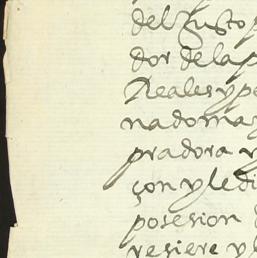 del Justo p
dor de la p
Reales y pe
nadoma
pradora y
çon y le di
posesion d
refiere y l